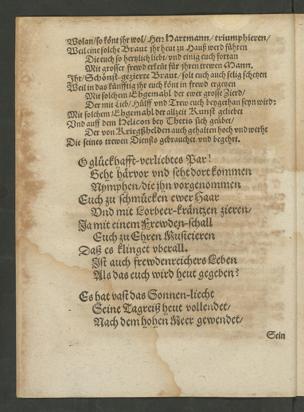 Wolan/ so könt jhr wol/ Herr Hartmann/ triumphieren/
Weil eine solche Braut jhr heut zu Hauß werd führen
Die euch so hertzlich liebt/ und einig euch fortan
Mit grosser frewd erkiåt für jhren trewen Mann.
Jhr/ Schönst-gezierte Braut/ solt euch auch selig schetzen
Weil in das künfftig jhr euch könt in frewd ergetzen
Mit solchem Ehgemahl der ewer grosse Zierd/
Der mit Lieb/ Hülff und Trew euch beygethan seyn wird:
Mit solchem Ehgemahl der allzeit Kunst geliebet
Vnd auff dem Helicon bey Thetis sich geübet/
Der von Kriegßhelden auch gehalten hoch und werthe
Die seines trewen Diensts gebrauchet und begehrt.
O glückhafft-verliebtes Par!
Seht hårvor und seht dort kommen
Nymphen/ die ihn vorgenommen
Euch zu schmücken ewer Haar
Vnd mit Lorbeer-kråntzen zieren/
Ja mit einem Frewden-schall
Euch zu Ehren Musicieren
Daß es klinget vberall.
Ist auch frewdenreichers Leben
Als das euch wird heut gegeben?
Es hat vast das Sonnen-liecht
Seine Tagreiß heut vollendet/
Nach dem hohen Meer gewendet/
Sein